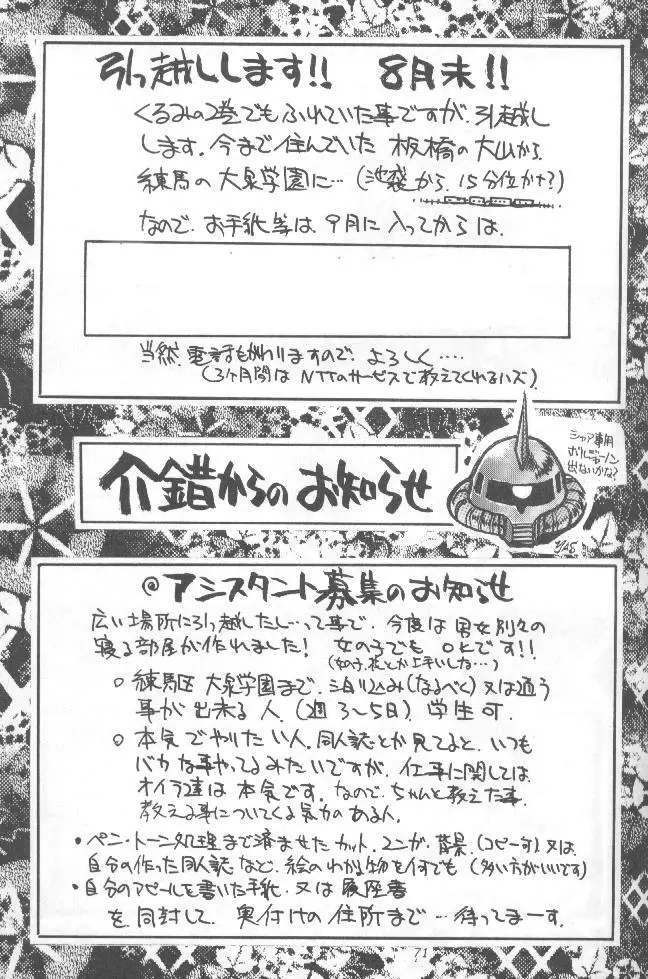 引っ越しします!! 8月末!!
くるみの2巻でもふれていた事ですが、引越し
します。今まで住んでいた 板橋の大山から
練馬の大泉学園に…(池袋から、15分位かナ?)
なので、お手紙等は、9月に入ってからは、
当然、電話もかわりますので、よろしく‥‥
(3ヶ月間は NTTのサービスで教えてくれるハズ)
シャア専用
ポリジョーノン
出ないかな?
介錯からの お知らせ
◎アシスタント募集のお知らせ
広い場所に引っ越したし…って事で、今度は男女別々の
寝る部屋が作れました! 女の子でも OKです!!
(女の子、花とか上手いしね…)
○ 練馬区 大泉学園まで、泊り込み(なるべく)又は通う
事が出来る人。(週3〜5日)学生可.
○ 本気でやりたい人。同人誌とか見てると、いつも
バカな事やってるみたいですが、仕事に関しては、
オイラ達は本気です。なので、ちゃんと教えた事、
教える事についてくる気力のある人。
・ペン・トーン処理まで済ませたカット、マンガ、背景、(コピー可)又は、
自分の作った同人誌など、絵のわかる物を何でも(多い方がいいです)
・自分のアピールを書いた手紙、又は履歴書
を同封して、奥付けの住所まで…待ってまーす。
71